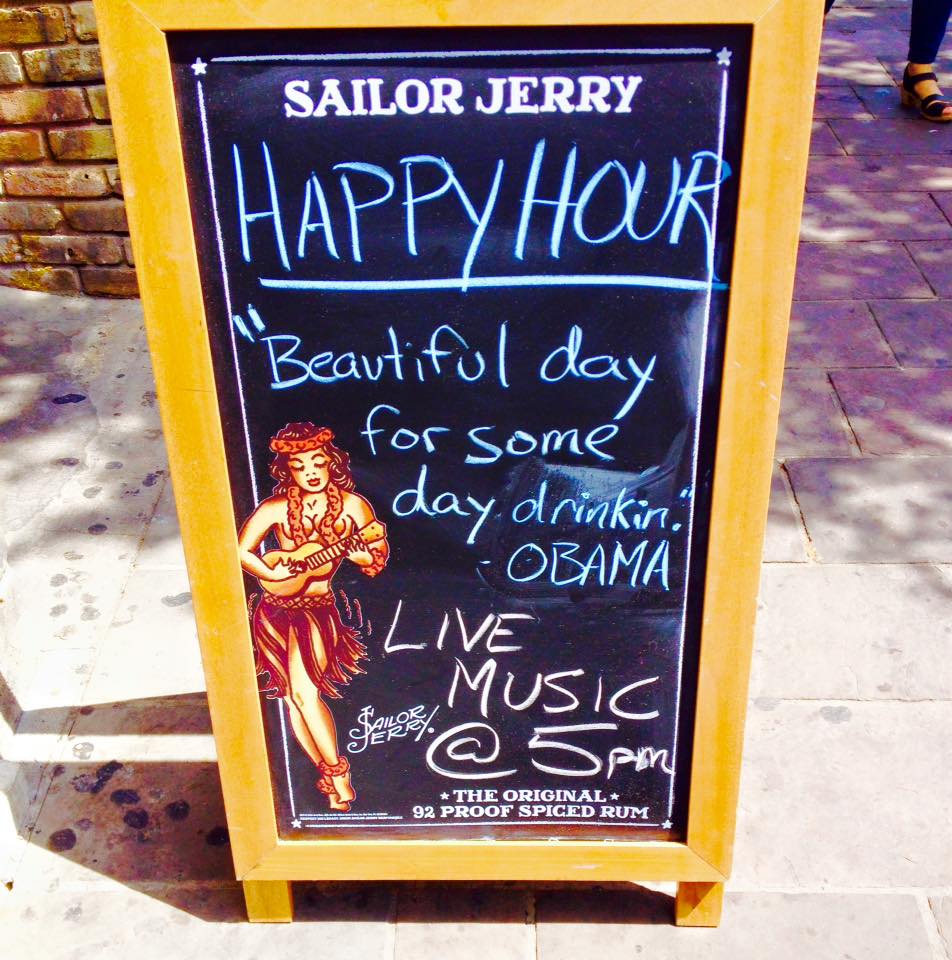 SAILOR JERRY
HAPPY HOUR
"Beautiful day
for some
day drinkin."
- OBAMA
LIVE
MUSIC
@ 5pm
SAILOR
JERRY.
★ THE ORIGINAL ★
92 PROOF SPICED RUM